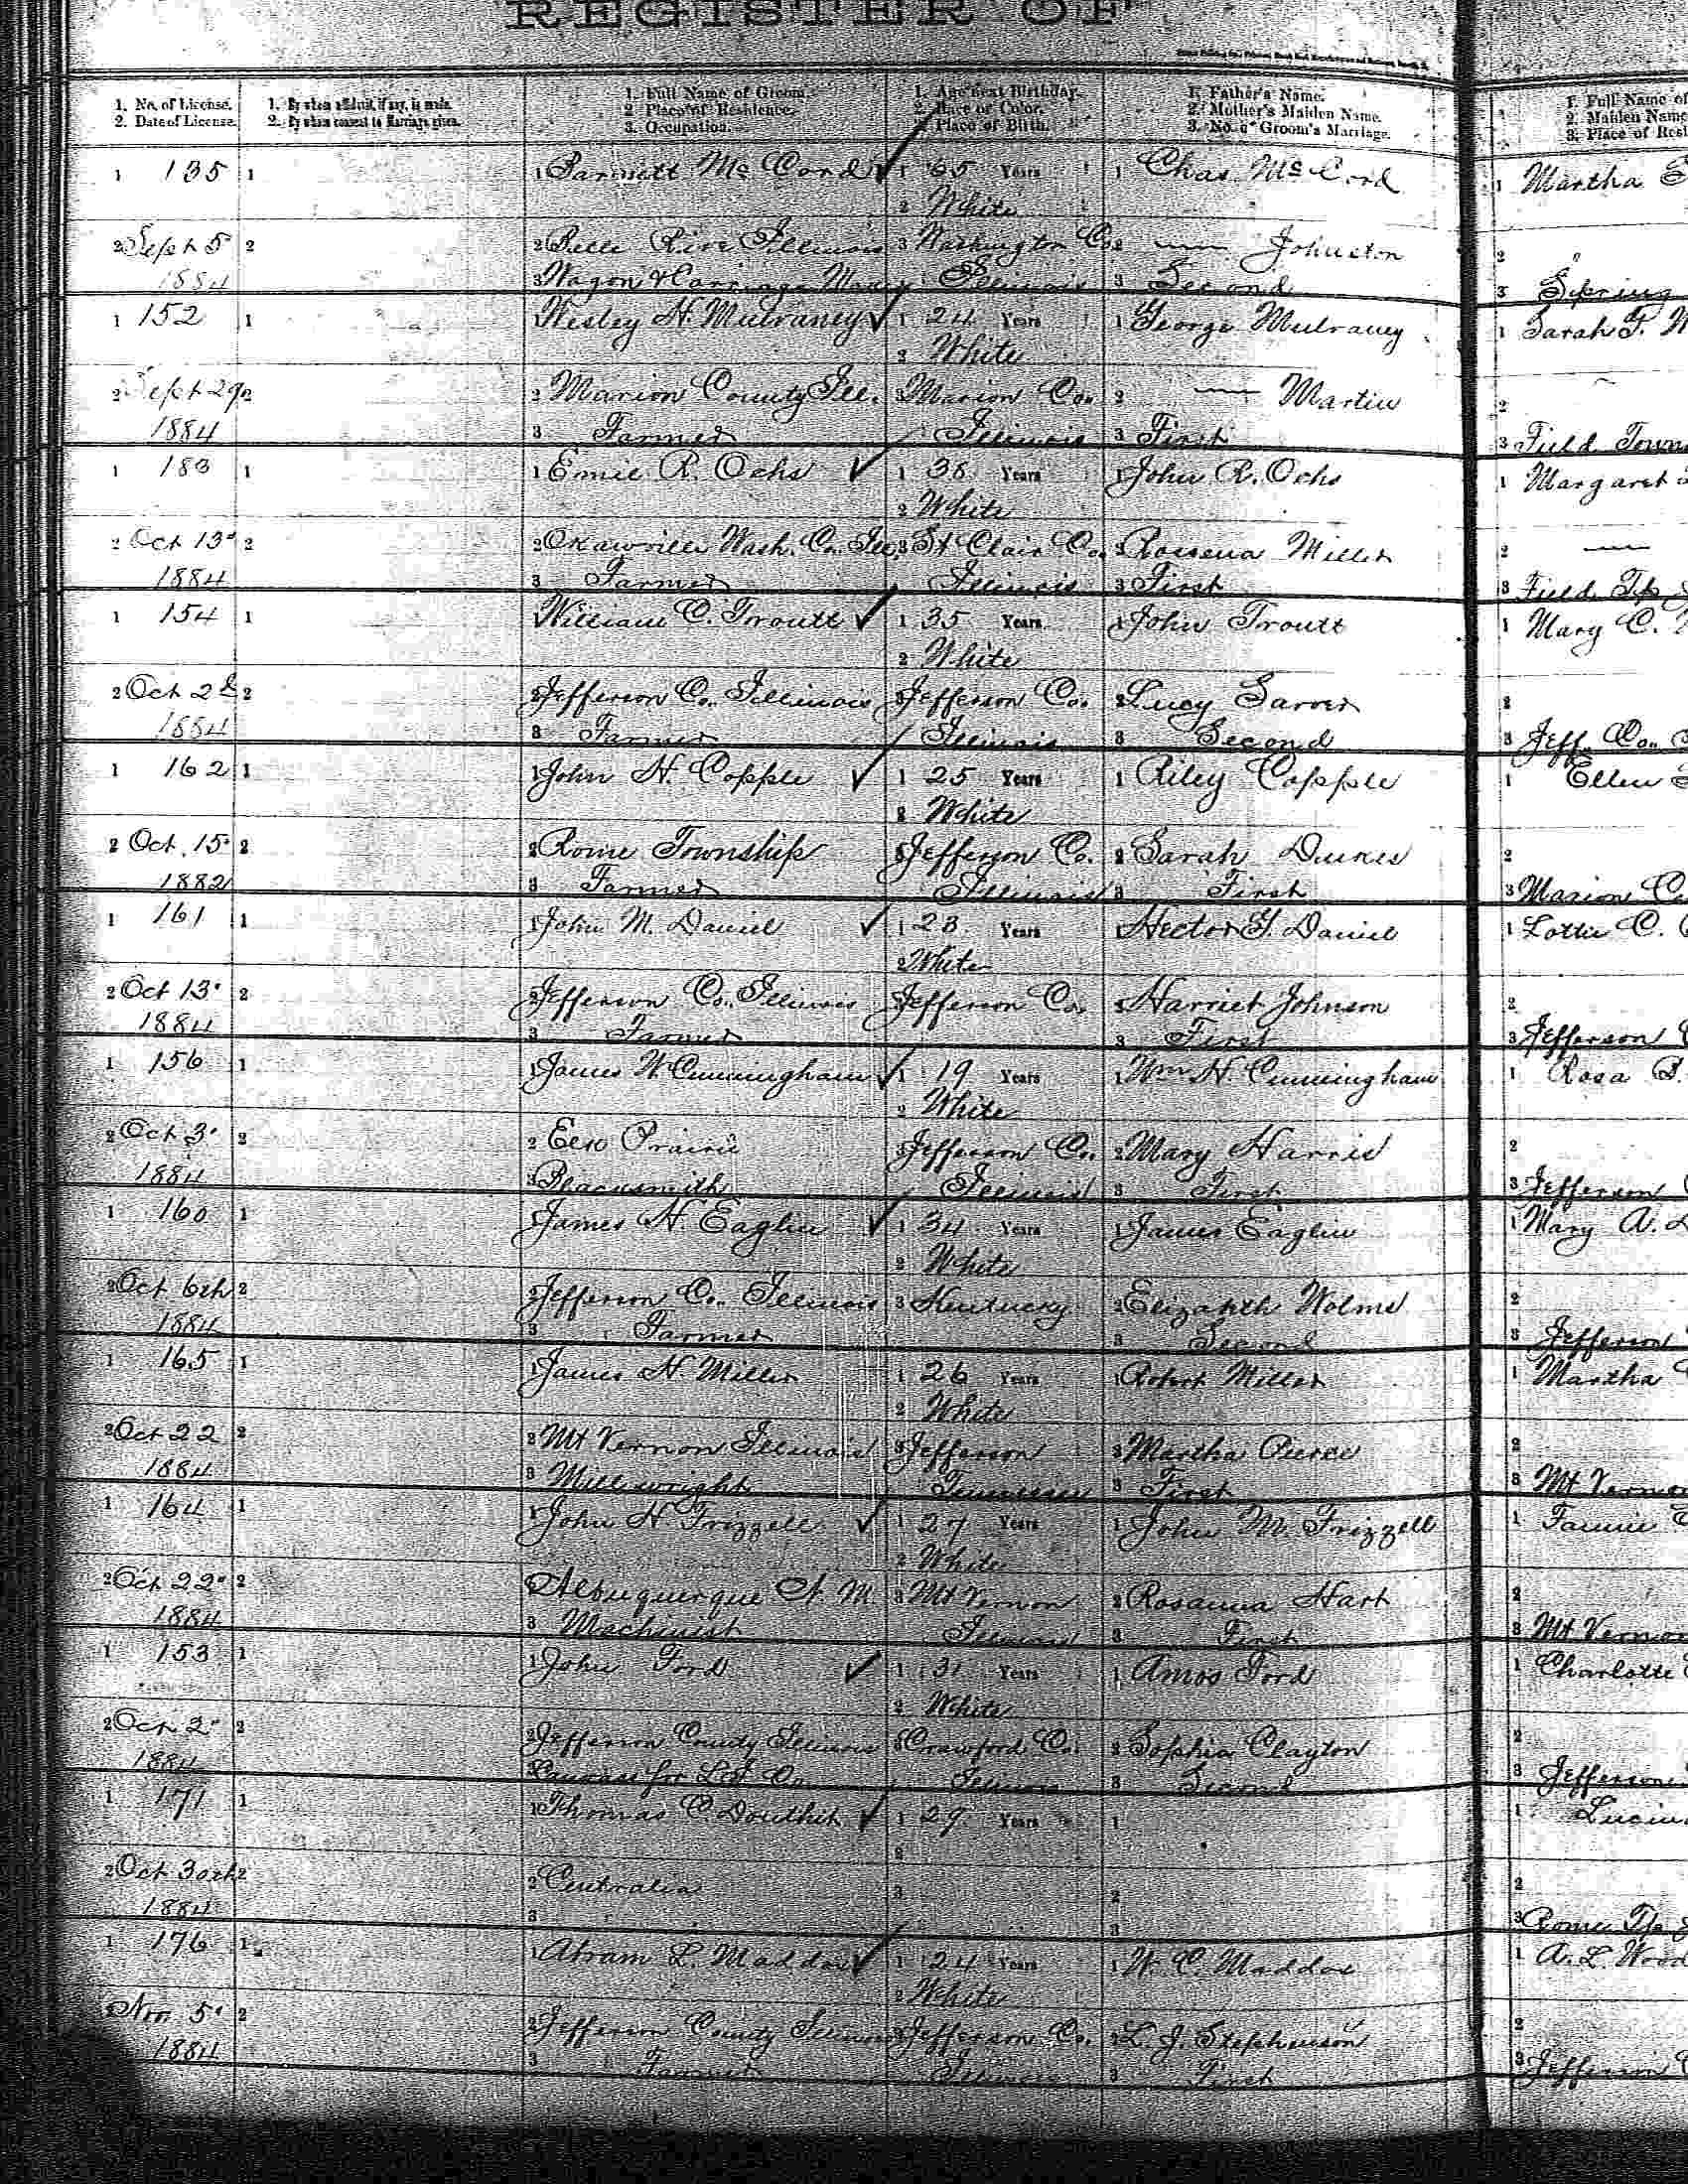 REGISTER OF
1. No. of License.
2. Date of License.
1. By whom affidavit, if any, is made.
2. By whom consent to Marriage given.
1. Full Name of Groom.
2 Place of Residence.
3. Occupation.
1. Age next Birthday.
2. Race or Color.
Place of Birth.
1. Father's Name.
2. Mother's Maiden Name.
3. No. of Groom's Marriage.
1. Full Name of
2. Maiden Name
3. Place of Resi
1 135 1 1 McCord 1 65 Years 1 Chas McCord 1 Martha
2 White
2 Sept 5 2 2 Belle Rive Illinois 3 Washington Co 2 — Johnston 2
1884 3 Wagon & Carriage Illinois 3 Second 3 Spring
1 152 1 Wesley H. Mulvaney 1 24 Years 1 George Mulvaney 1 Sarah
2 White
2 Sept 29 2 2 Marion County Ill. Marion Co. 2 — Martin 2
1884 3 Farmer Illinois 3 First 3 Field Town
1 183 1 1 Emil R. Ochs 1 38 Years 1 John R. Ochs 1 Margaret
2 White
2 Oct 13 2 2 Okawville Wash. Co. Ill 3 St Clair Co. 2 Rossena Miller 2 —
1884 3 Farmer Illinois 3 First 3 Field Tp
1 154 1 William C. Troutt 1 35 Years 1 John Troutt 1 Mary C.
2 White
2 Oct 2d 2 2 Jefferson Co. Illinois Jefferson Co. 2 Lucy Sarver 2
1884 3 Farmer Illinois 3 Second 3 Jeff. Co.
1 162 1 1 John H. Copple 1 25 Years 1 Riley Copple 1 Ellen
2 White
2 Oct. 15 2 2 Rome Township 3 Jefferson Co. 2 Sarah 2
1882 3 Farmer Illinois 3 First 3 Marion Co
1 161 1 1 John M. Daniel 1 23 Years 1 Hector G. Daniel 1 Lottie C.
2 White
2 Oct 13 2 2 Jefferson Co. Illinois Jefferson Co. 2 Harriet Johnson 2
1884 3 Farmer 3 First 3 Jefferson
1 156 1 1 James W Cunningham 1 19 Years 1 Wm H. Cunningham 1 Rosa
2 White
2 Oct 3 2 2 Elk Prairie 3 Jefferson Co. 2 Mary Harris 2
1884 3 Blacksmith Illinois 3 First 3 Jefferson
1 160 1 1 James H Eaglin 1 34 Years 1 James Eaglin 1 Mary A.
2 White
2 Oct 6th 2 2 Jefferson Co. Illinois 3 Kentucky 2 Elizabeth 2
1884 3 Farmer 3 Second 3 Jefferson
1 165 1 1 James H. Miller 1 26 Years 1 Robert Miller 1 Martha
2 White
2 Oct 22 2 2 Mt Vernon Illinois 3 Jefferson 2 Martha Pierce 2
1884 3 Millwright Tennessee 3 First 3 Mt Vernon
1 164 1 1 John H Frizzell 1 27 Years 1 John M Frizzell 1 Fannie
2 White
2 Oct 22 2 Albuquerque N. M. 3 Mt Vernon 2 Rosanna Hart 2
1884 3 Machinist Illinois 3 First 3 Mt Vernon
1 153 1 1 John Ford 1 31 Years 1 Amos Ford 1 Charlotte
2 White
2 Oct 2 2 2 Jefferson County Illinois 3 Crawford Co. 2 Sophia Clayton 2
1884 for Co Illinois 3 Second 3 Jefferson
1 171 1 1 Thomas C. Douthit 1 29 Years 1 1
2
2 Oct 30th 2 2 Centralia 3 2 2
1884 3 3 3 Rome Tp
1 176 1 1 Abram L. Maddox 1 24 Years 1 W. C. Maddox 1 A. L. Wood
2 White
2 Nov 5 2 2 Jefferson County Illinois 3 Jefferson Co. 2 L. J. Stephenson 2
1884 3 Farmer Illinois 3 First 3 Jefferson